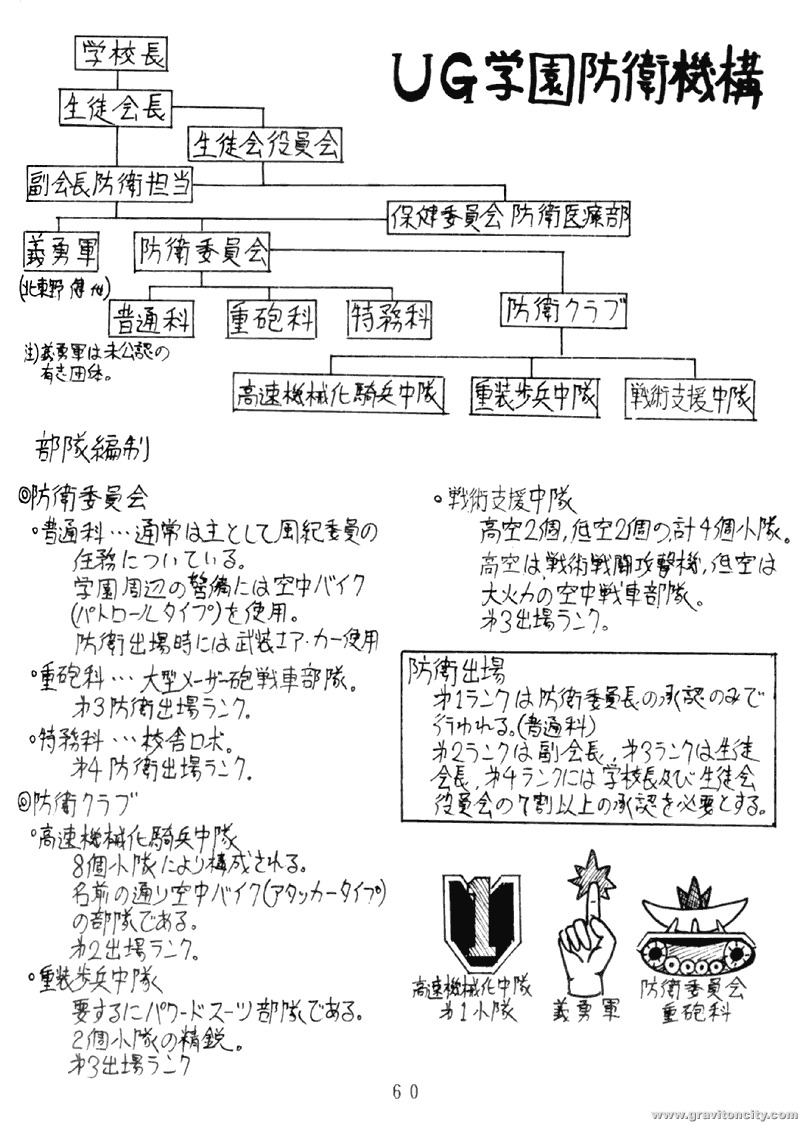 UG学園防衛機構
学校長
生徒会長
生徒会役員会
副会長防衛担当
保健委員会 防衛医療部
義勇軍
防衛委員会
(北東野 健他)
普通科
重砲科
特務科
防衛クラブ
注)義勇軍は未公認の
有志団体。
高速機械化騎兵中隊
重装歩兵中隊
戦術支援中隊
部隊編制
◎防衛委員会
・普通科…通常は主として風紀委員の
任務についている。
学園周辺の警備には空中バイク
(パトロールタイプ)を使用。
防衛出場時には武装エア・カー使用
・重砲科…大型メーザー砲戦車部隊。
第3防衛出場ランク。
・特務科…校舎ロボ。
第4防衛出場ランク.
◎防衛クラブ
・高速機械化騎兵中隊
8個小隊により構成される。
名前の通り空中バイク(アタッカータイプ)
の部隊である。
第2出場ランク。
・重装歩兵中隊
要するにパワードスーツ部隊である。
2個小隊の精鋭。
第3出場ランク
・戦術支援中隊
高空2個,低空2個の,計4個小隊。
高空は,戦術戦闘攻撃機,低空は
大火力の空中戦車部隊。
第3出場ランク。
防衛出場
第1ランクは防衛委員長の承認のみで
行われる。(普通科)
第2ランクは副会長,第3ランクは生徒
会長,第4ランクには学校長及び生徒会
役員会の7割以上の承認を必要とする。
1
高速機械化中隊
第1小隊
義勇軍
防衛委員会
重砲科
60
www.gravitoncity.com